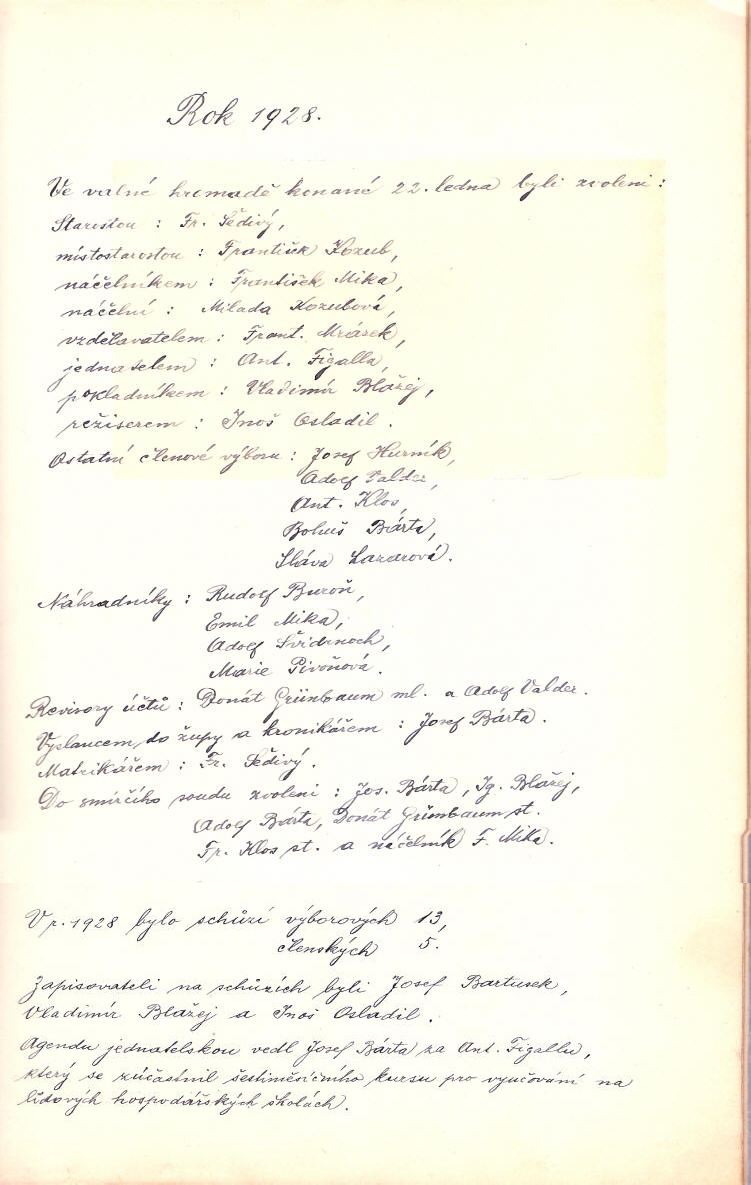 Rok 1928.
Ve valné hromadě konané 22. ledna byli zvoleni:
Starostou : Fr. Šedivý,
místostarostou : František Kozub,
náčelníkem : František Mika,
náčelní : Milada Kozubová,
vzdělavatelem : Frant. Mrázek,
jednatelem : Ant. Figalla,
pokladníkem : Vladimír Blažej,
režiserem : Inoš Osladil.
Ostatní členové výboru : Josef Hurník,
Adolf Valder,
Ant. Klos,
Bohuš Bárta,
Sláva Lazarová.
Náhradníky : Rudolf Buroň,
Emil Mika,
Adolf Švidrnoch,
Marie Pivoňová.
Revisory účtů : Donát Grünbaum ml. a Adolf Valder.
Vyslancem do župy a kronikářem : Josef Bárta.
Matrikářem : Fr. Šedivý.
Do smírčího soudu zvoleni : Jos. Bárta, Ig. Blažej,
Adolf Bárta, Donát Grünbaum st.
Fr. Klos st. a náčelník F. Mika.
V r. 1928 bylo schůzí výborových 13,
členských 5.
Zapisovateli na schůzích byli Josef Bartusek,
Vladimír Blažej a Inoš Osladil.
Agendu jednatelskou vedl Josef Bárta za Ant. Figallu,
který se zúčastnil šestiměsíčního kursu pro vyučování na
lidových hospodářských školách.